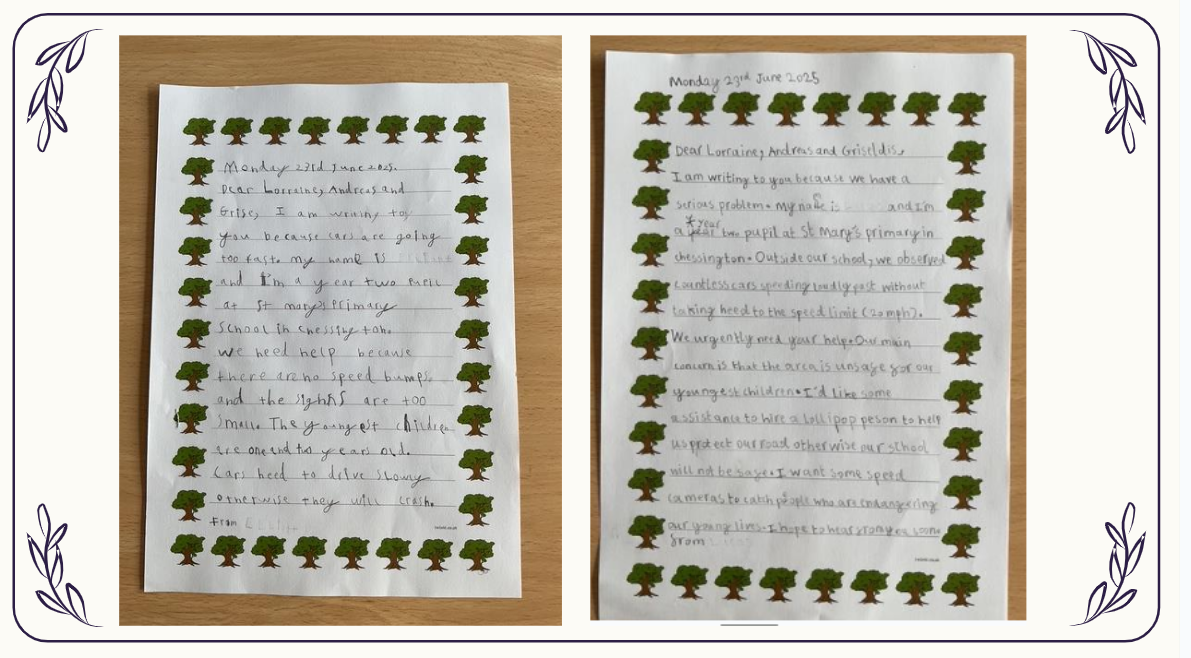 Monday 23rd June 2025.
Dear Lorraine, Andreas and
Grise, I am writing to
you because cars are going
too fast. my name is
and I'm a year two
at St mary's Primary
School in chessington.
we need help because
there are no speed bumps,
and the sighns are too
Small. The youngest children
are one and two years old.
Cars need to drive slowly
otherwise they will crash.
From
Monday 23rd June 2025
Dear Lorraine, Andreas and Griseldis,
I am writing to you because we have a
serious problem. My name is and I'm
year
a two pupil at St Mary's primary in
chessington. Outside our school, we observed
countless cars speeding loudly past without
taking heed to the speed limit (20mph).
We urgently need your help. Our main
concern is that the area is unsafe for our
youngest children. I'd like some
assistance to hire a lollipop peson to help
us protect our road otherwise our school
will not be safe. I want some speed
cameras to catch people who are endangering
our young lives. I hope to hear from you soone
from